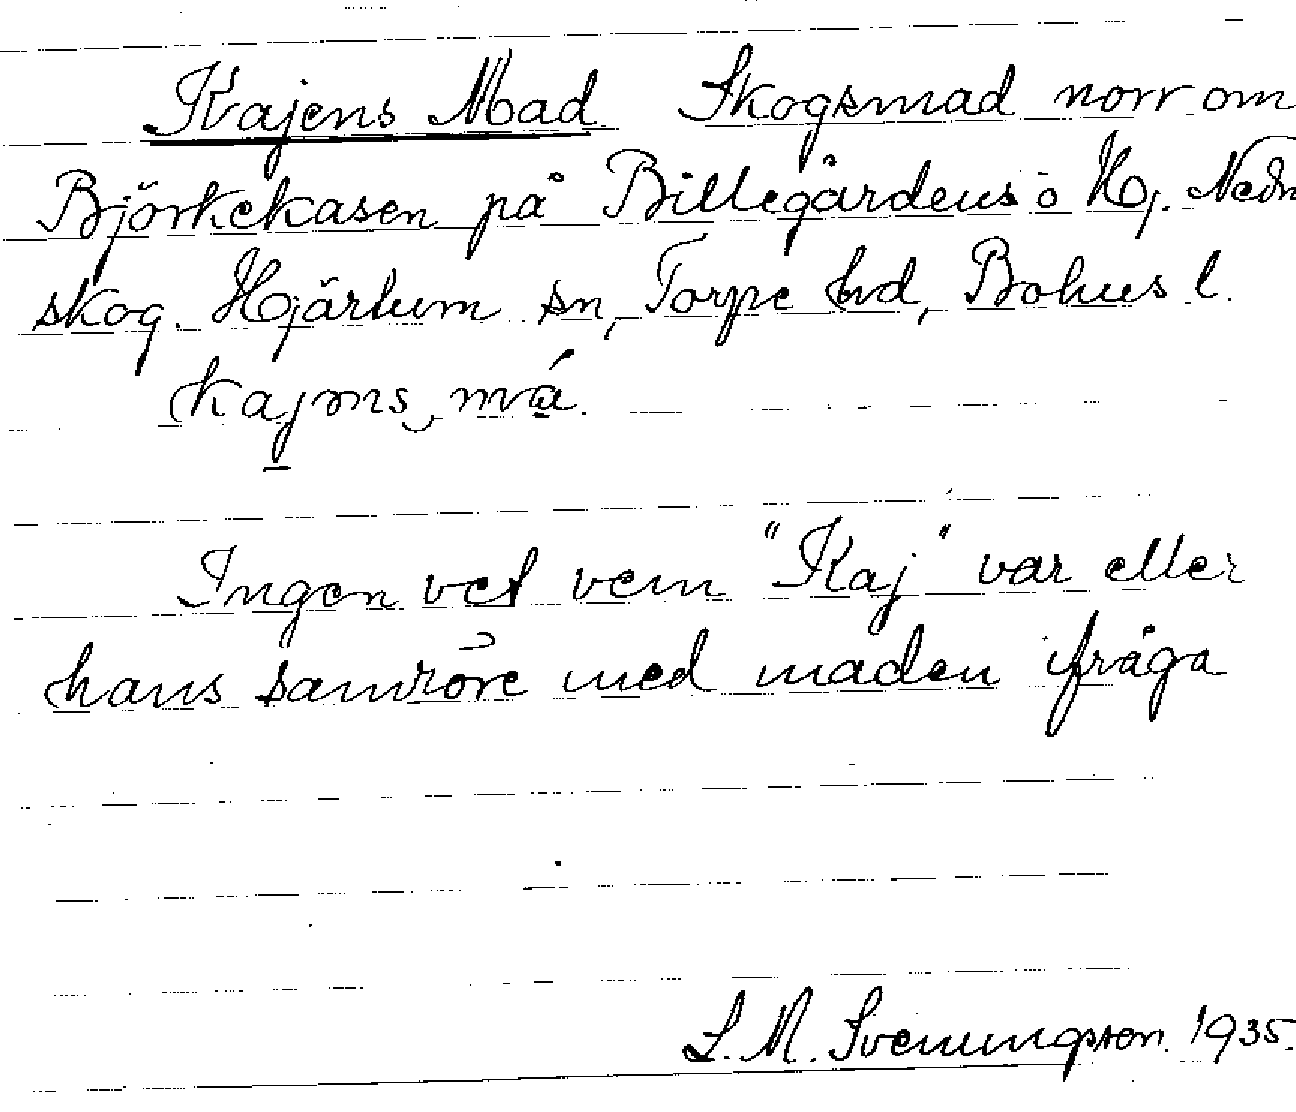 Kajens Mad. Skogsmad norr om
Björkekasen på Billegårdens ö Hj. Nedn
skog. Hjärtum sn, Torpe hd, Bohus l.
kajms må.
Ingen vet vem "Kaj" var eller
hans samröre med maden ifråga
S. M. Svenungsson. 1935.